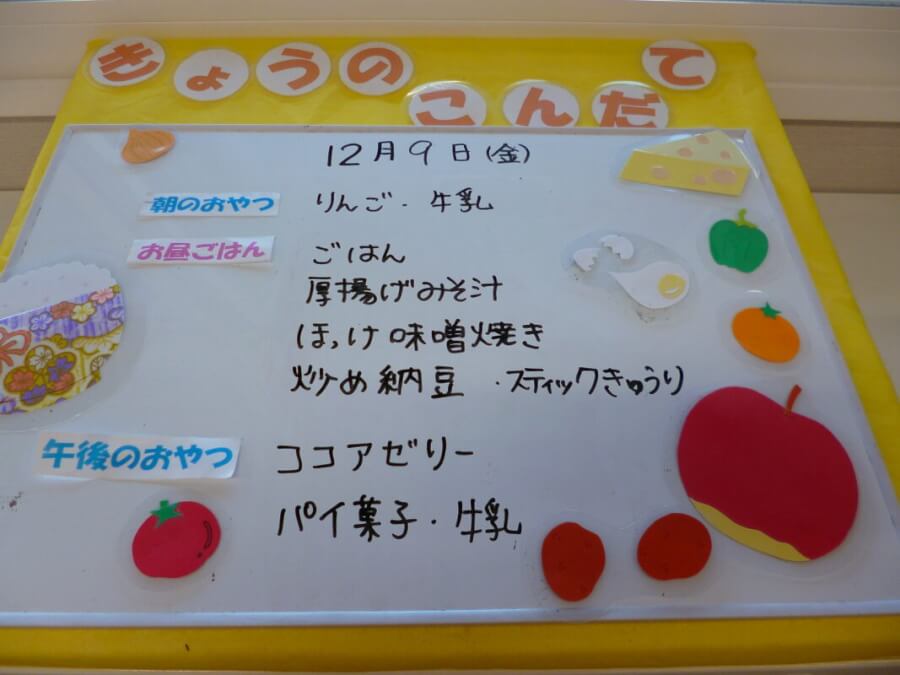 きょうのこんだて
12月9日(金)
朝のおやつ りんご・牛乳
お昼ごはん ごはん
厚揚げみそ汁
ほっけ味噌焼き
炒め納豆・スティックきゅうり
午後のおやつ ココアゼリー
パイ菓子・牛乳